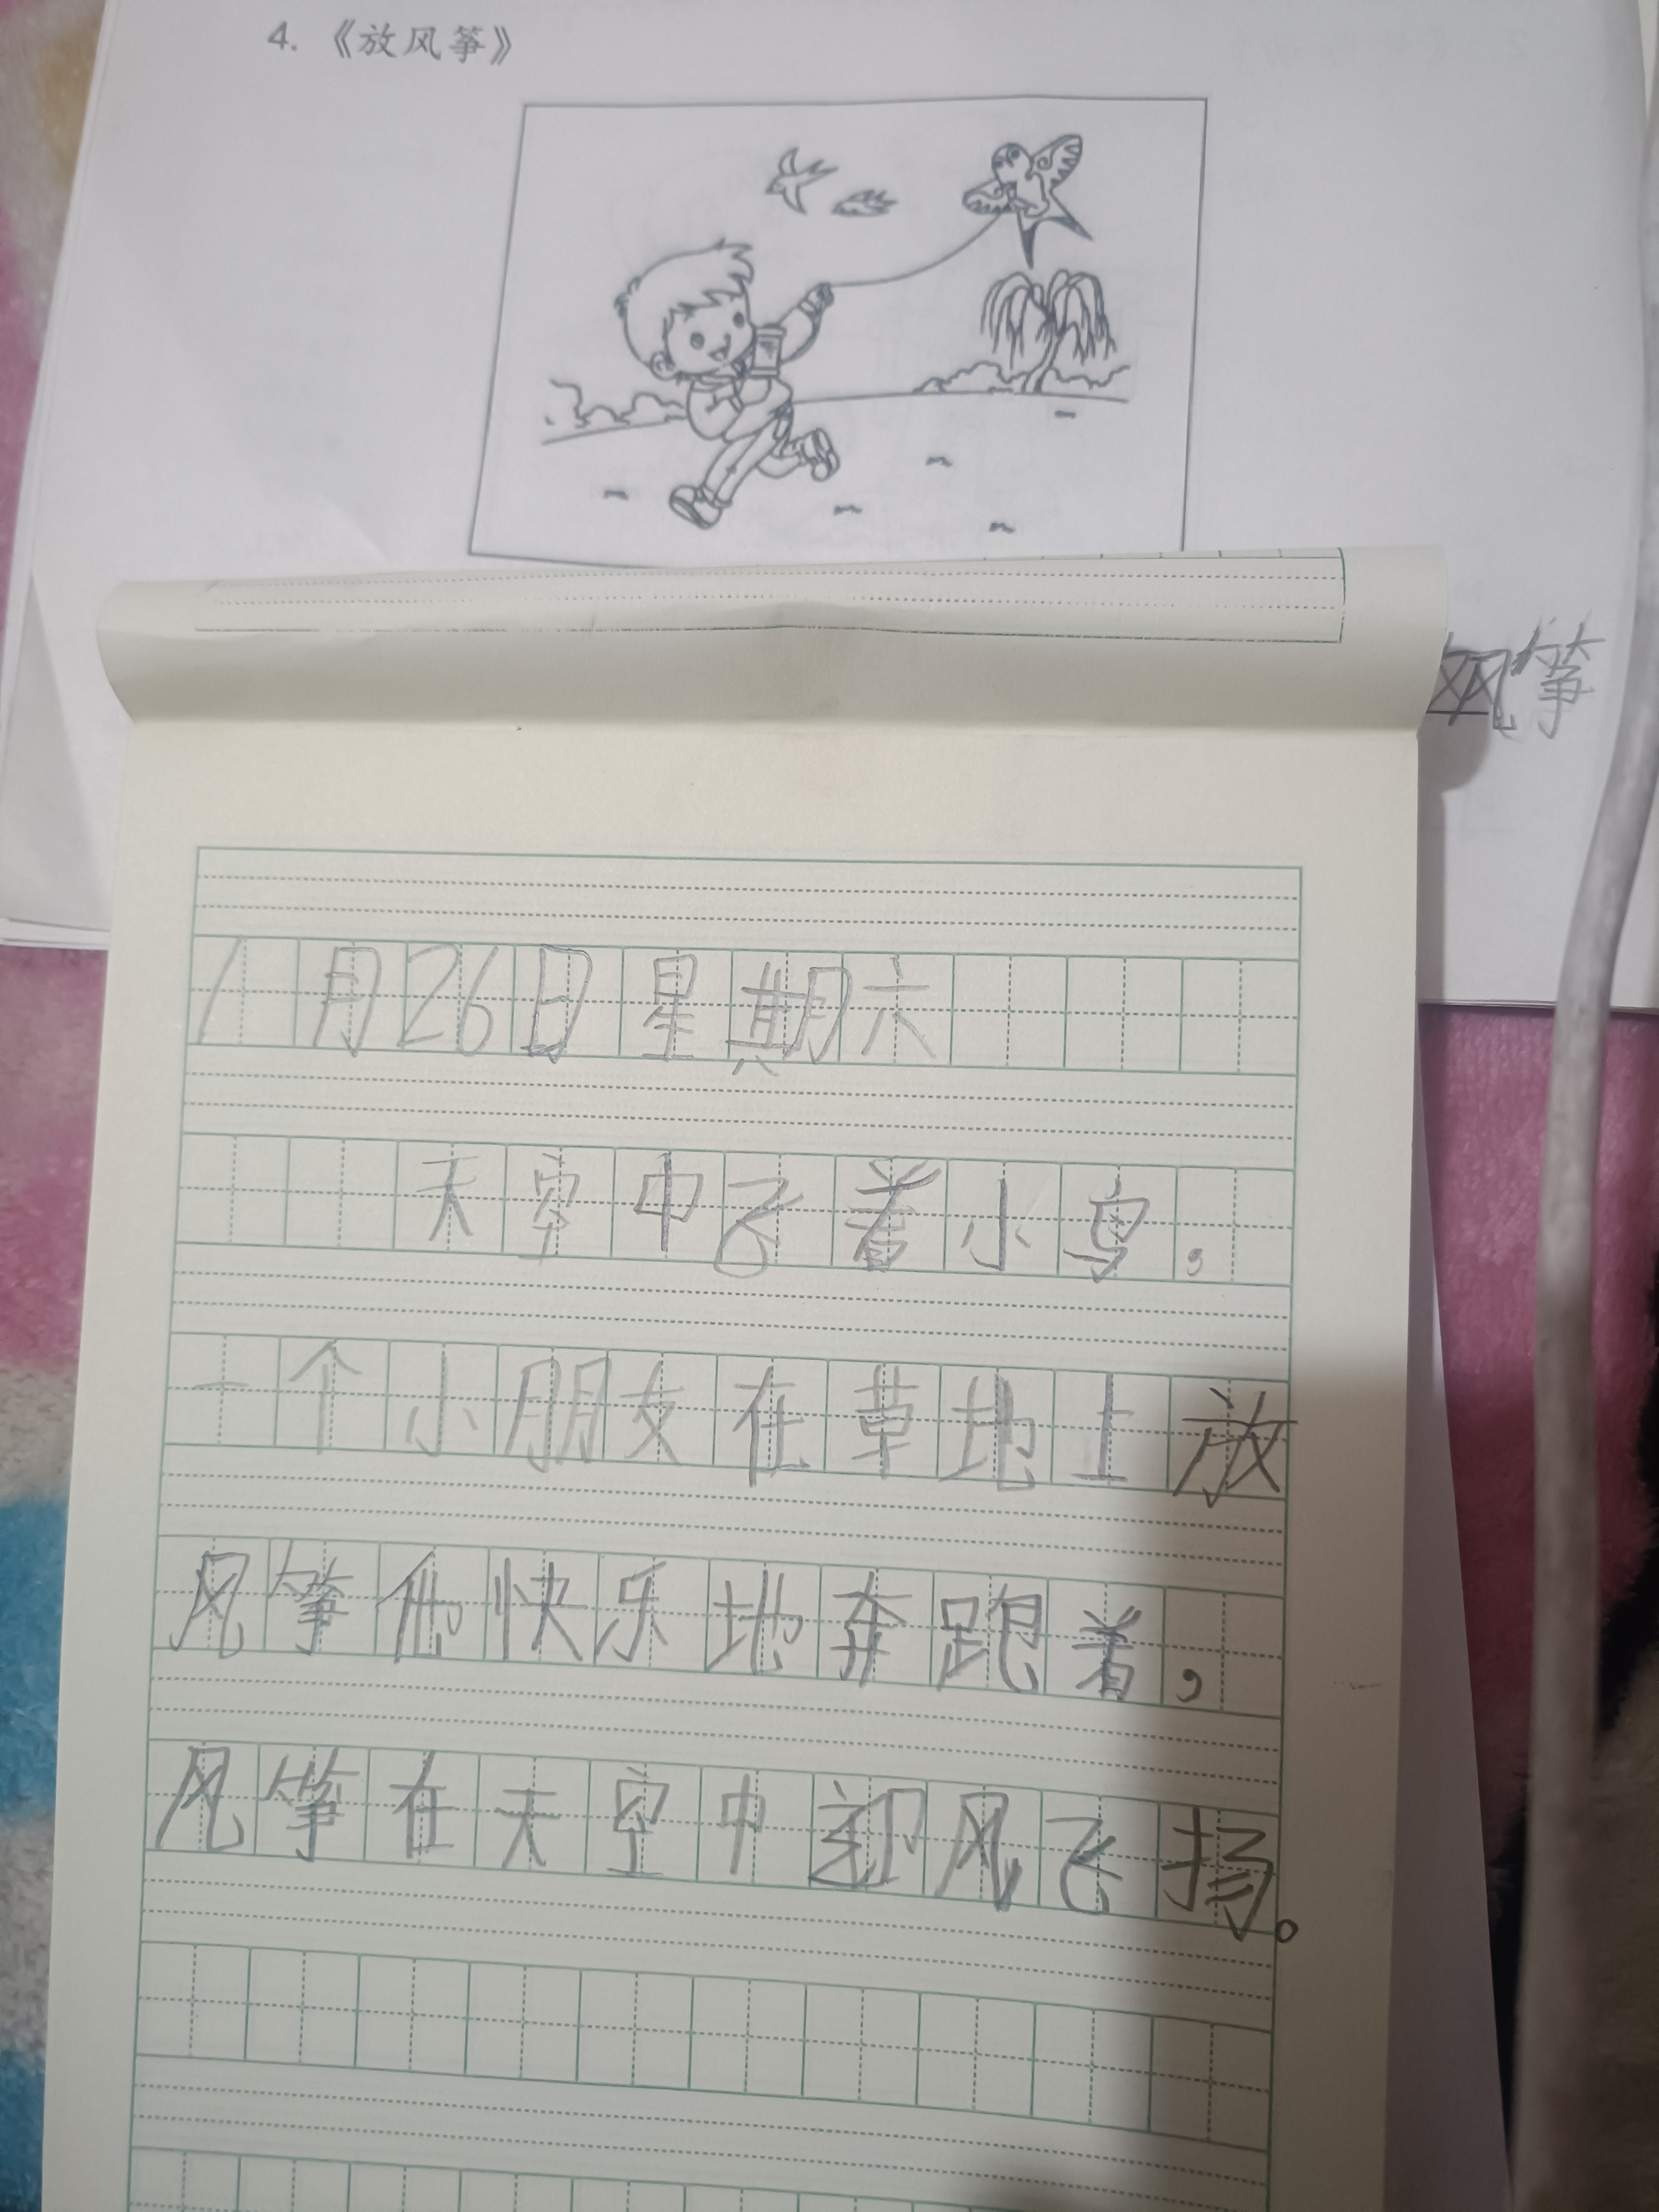 4. 《放风筝》
风筝
1月26日星期六
天空中飞着小鸟，
一个小朋友在草地上放
风筝他快乐地奔跑着，
风筝在天空中迎风飞扬。